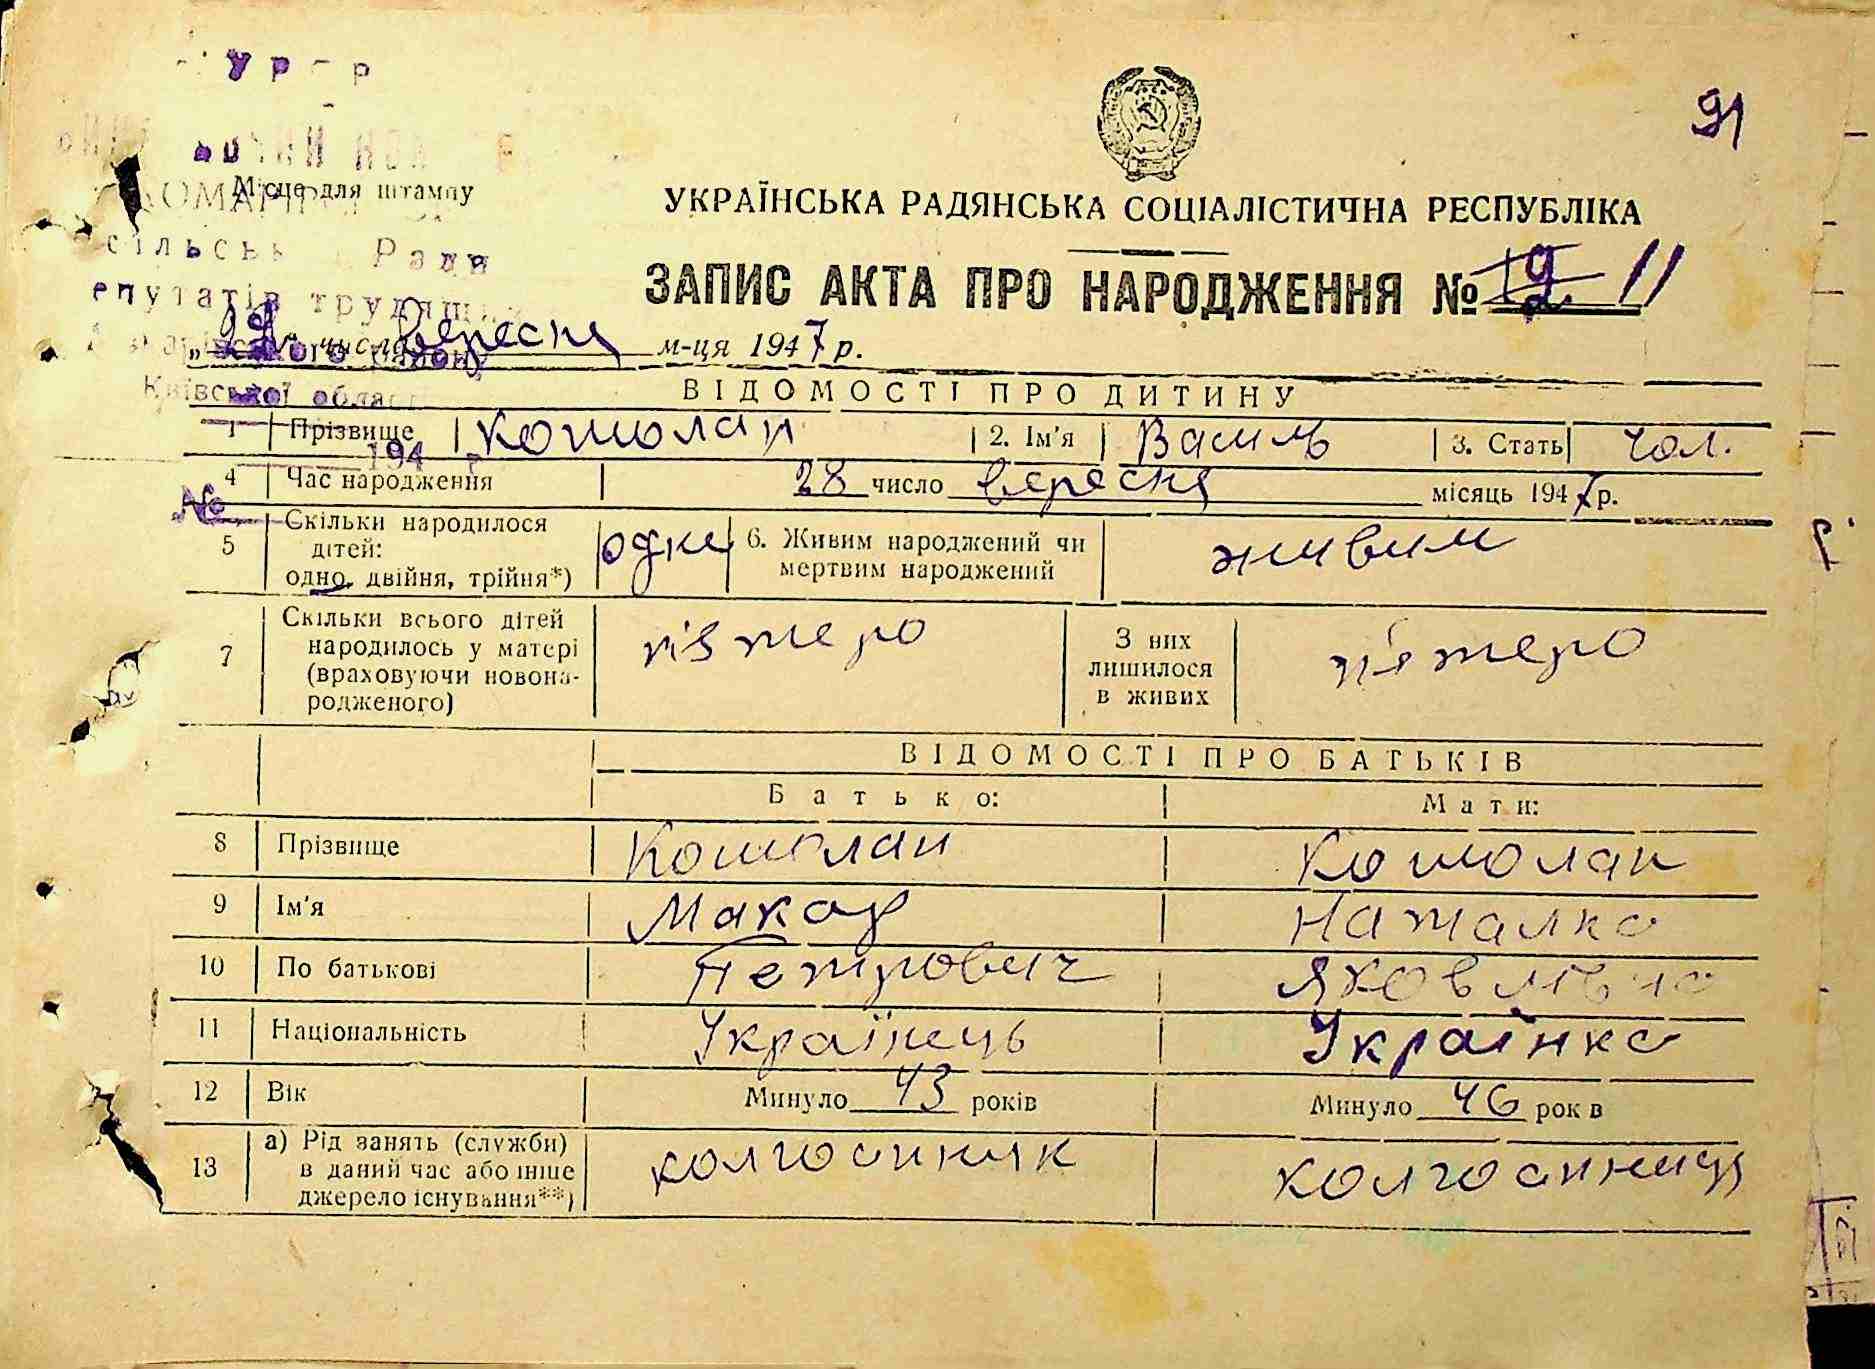 УРСР
91
Місце для штампу
УКРАЇНСЬКА РАДЯНСЬКА СОЦІАЛІСТИЧНА РЕСПУБЛІКА
Ради
ЗАПИС АКТА ПРО НАРОДЖЕННЯ № 11
епутатів трудящих
числа вересня м-ця 1947 р.
району
Київської област
ВІДОМОСТІ ПРО ДИТИНУ
1 Прізвище Кошолап 2. Ім'я Василь 3. Стать чол.
194 р
4 Час народження 28 число вересня місяць 1947 р.
№
5 Скільки народилося дітей: одно, двійня, трійня*) одне 6. Живим народжений чи мертвим народжений живим
7 Скільки всього дітей народилось у матері (враховуючи новонародженого) пятеро З них лишилося в живих пятеро
ВІДОМОСТІ ПРО БАТЬКІВ
Батько: Мати:
8 Прізвище Кошолап Кошолап
9 Ім'я Макар Наталка
10 По батькові Петрович Яковлівна
11 Національність Українець Українка
12 Вік Минуло 43 років Минуло 46 рок в
13 а) Рід занять (служби) в даний час або інше джерело існування**) колгоспник колгоспниця